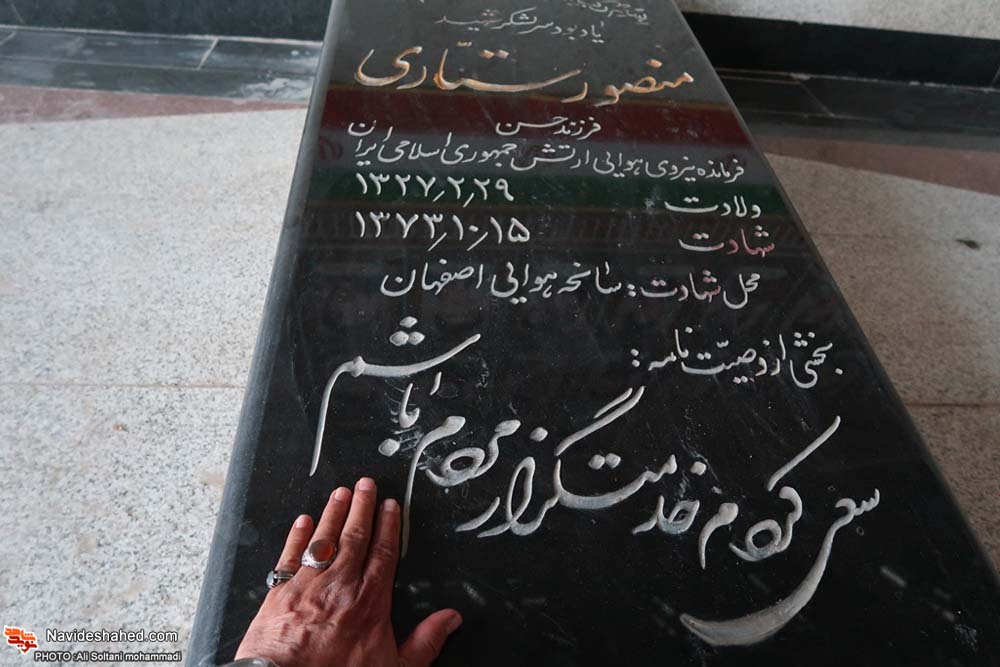 یادبود سرلشکر شهید
منصور ستّاری
فرزند حسن
فرمانده نیروی هوایی ارتش جمهوری اسلامی ایران
ولادت ۱۳۲۷٫۲٫۲۹
شهادت ۱۳۷۳٫۱۰٫۱۵
محل شهادت : سانحه هوایی اصفهان
بخشی از وصیّت نامه :
سعی کرده ام خدمتگزار مردم ام باشم
Navideshahed.com
PHOTO :Ali Soltani mohammadi